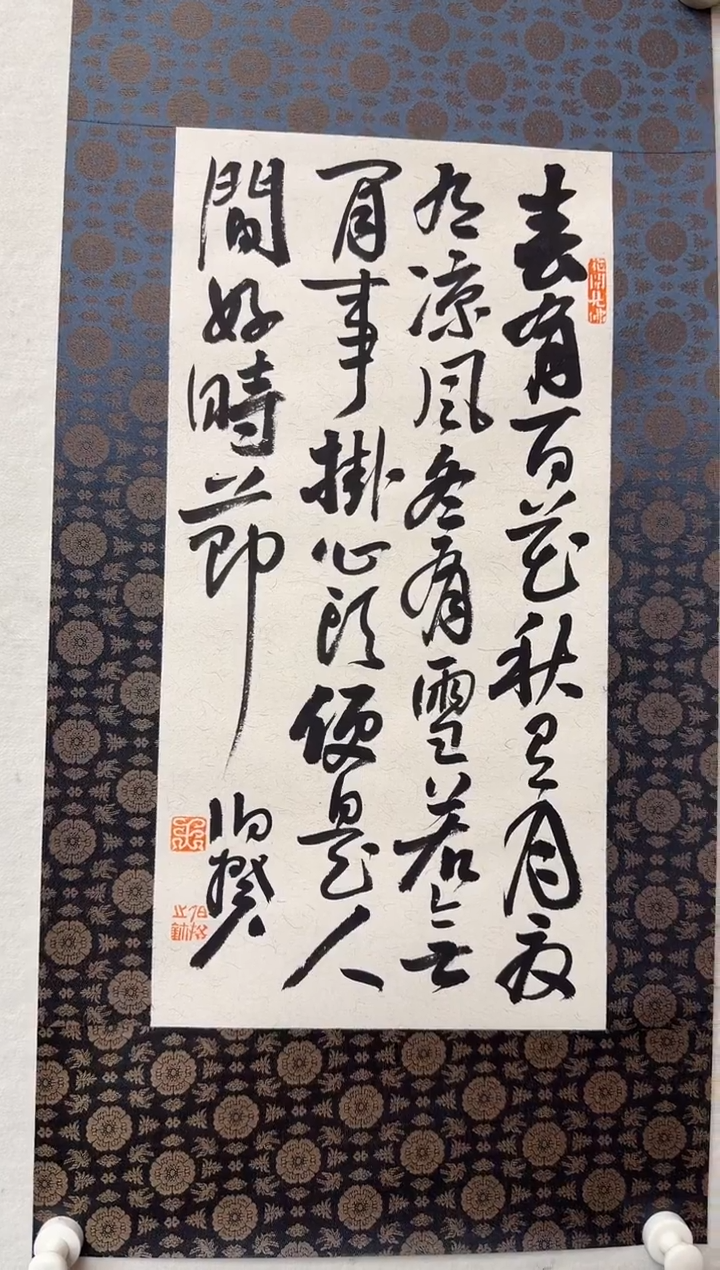 春有百花秋有月夏
有涼風冬有雪若無
閒事掛心頭便是人
間好時節
伯揆
花開見佛